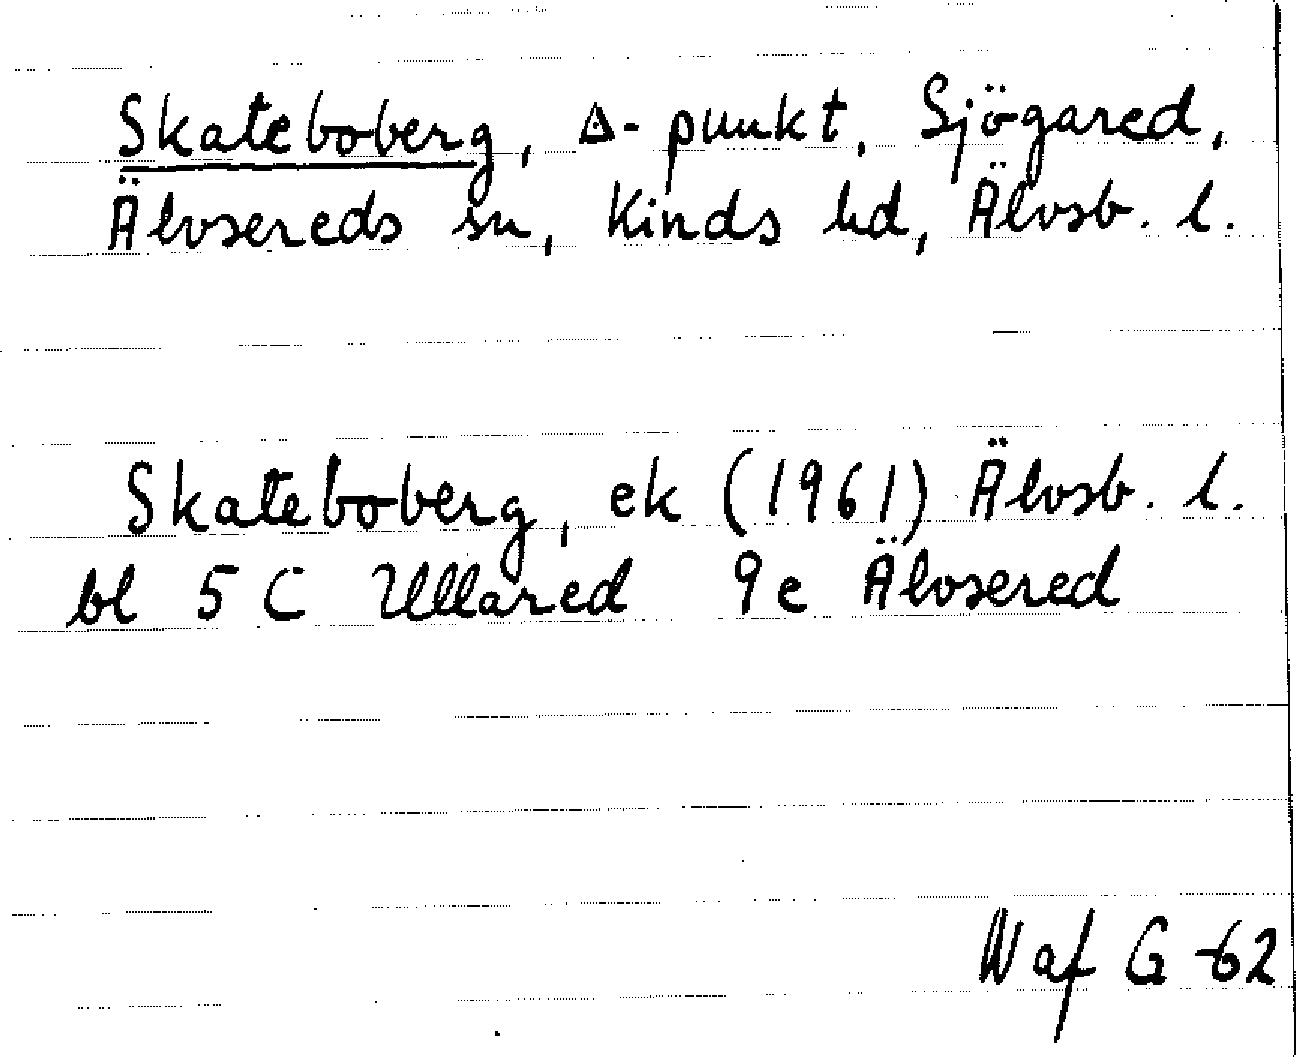 Skateboberg, Δ-punkt, Sjögared,
Älvsereds sn, Kinds hd, Älvsb. l.
Skateboberg, ek (1961) Älvsb. l.
bl 5 C Ullared 9e Älvsered
W af G -62